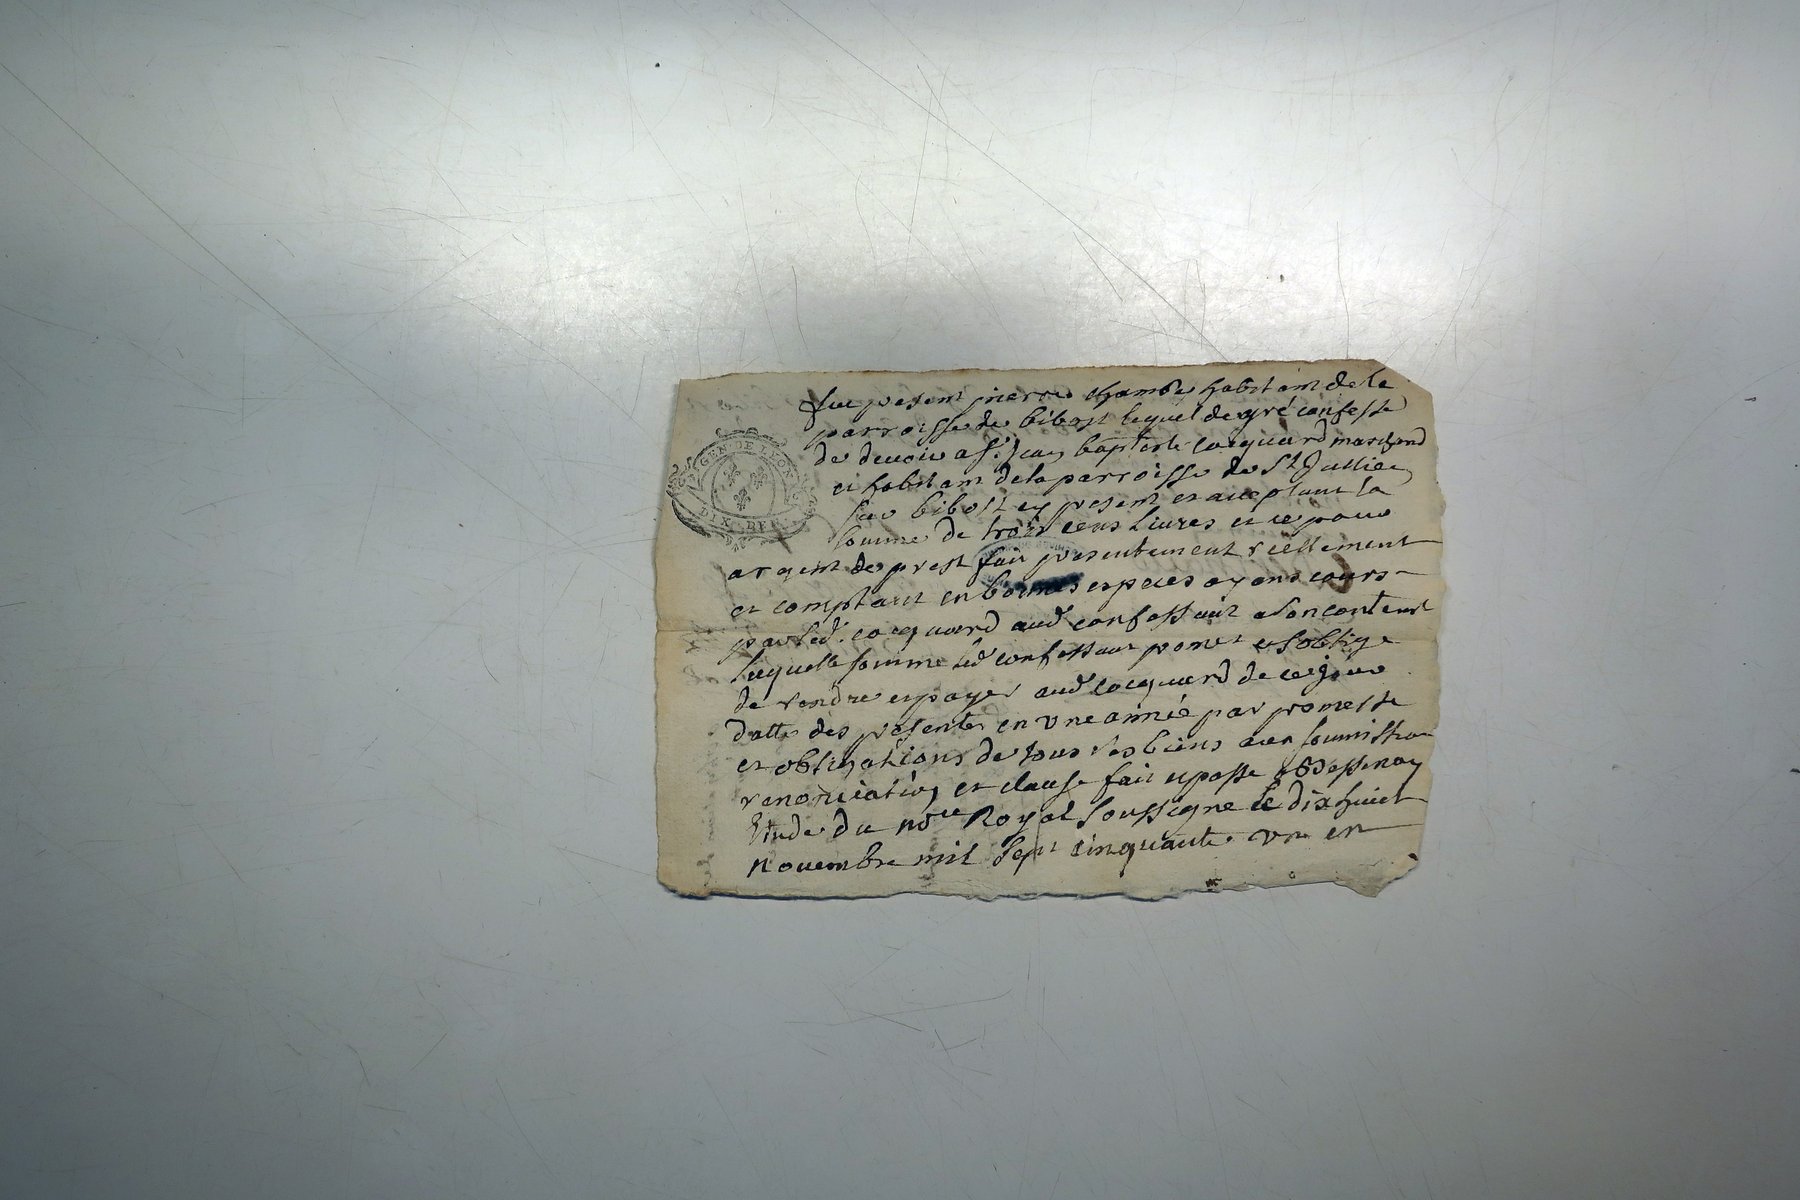 GEN DE LYON
DIX DEN
fut present pierre chambe habitant de la
parroisse de bibost lequel de gré confesse
de devoir a Sr. Jean baptiste cocquard marchand
et habitant de la parroisse de St Jullien
sur bibost cy present et acceptant la
somme de trois cens livres et ce pour
argent de prest fait presentement reellement
et comptant en bonnes especes ayans cours
par led. cocquard aud confessant a son contemt
laquelle somme led confessant promet et soblige
de rendre et payer aud cocquard de ce jour
datte des presentes en une année par promesse
et obligations de tous ses biens avec soumission
renonciation et clause fait et passe a Bessenay
Etude du nore Royal soussigne le dix huict
novembre mil sept cinquante un en